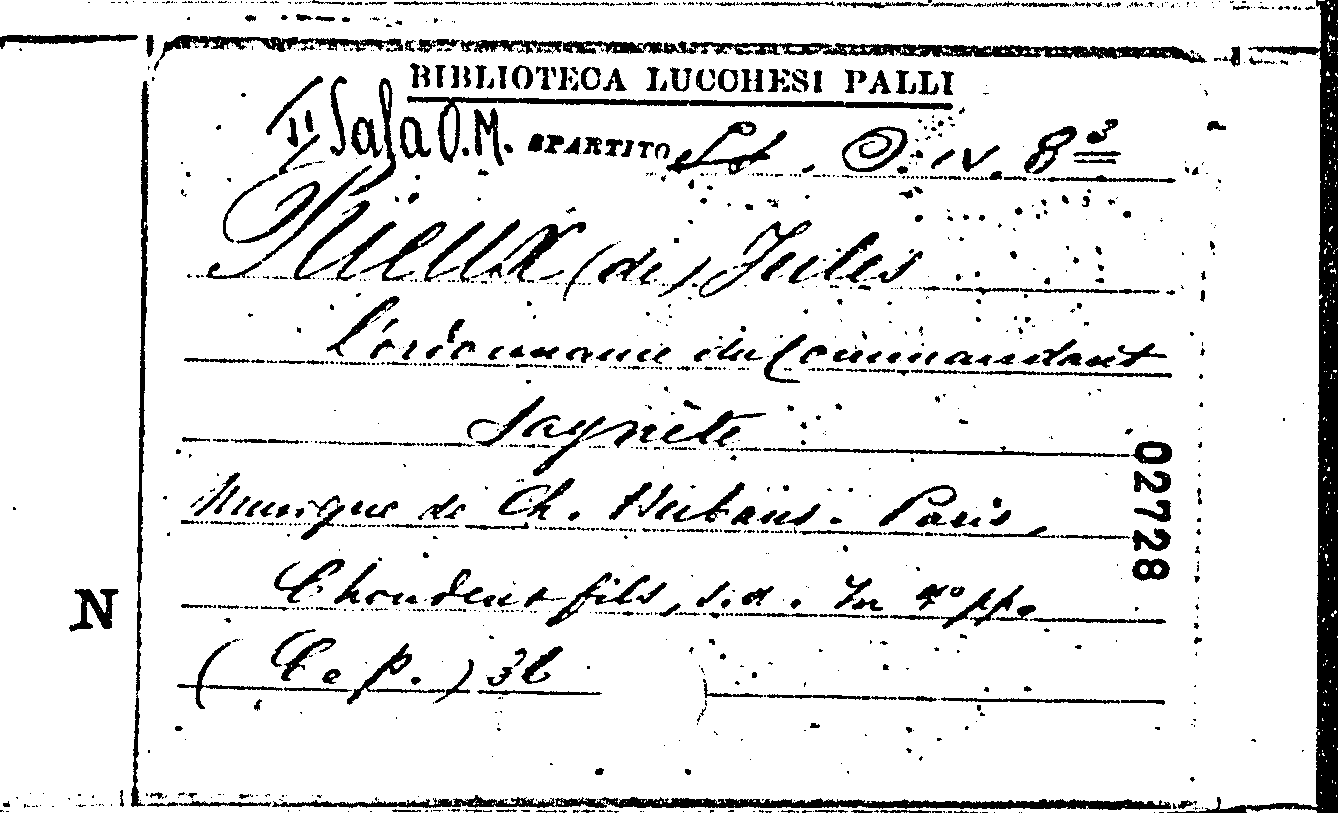 BIBLIOTECA LUCCHESI PALLI
II Sala O.M. SPARTITO O. IV. 8 3
Rieux (de) Jules
l'ordonnance du Commandant
Saynète
Musique de Ch. Heibans. Paris,
Choudens fils, s.d. In 4° pp.
(C e p.) 36
02728
N